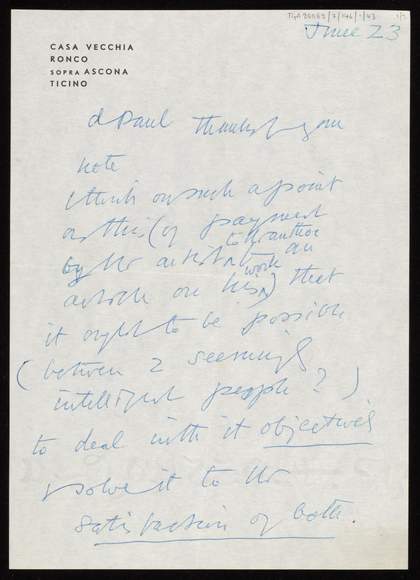 TGA 20089/7/146/1/43 1/2
June 23
CASA VECCHIA
RONCO
SOPRA ASCONA
TICINO
d Paul Thanks for you
note
I think on such a point
as this (of payment
to the author
by the artist of an
work
article on his) that
it ought to be possible
(between 2 seemingly
intelligent people?)
to deal with it objectively
& solve it to the
satisfaction of both.